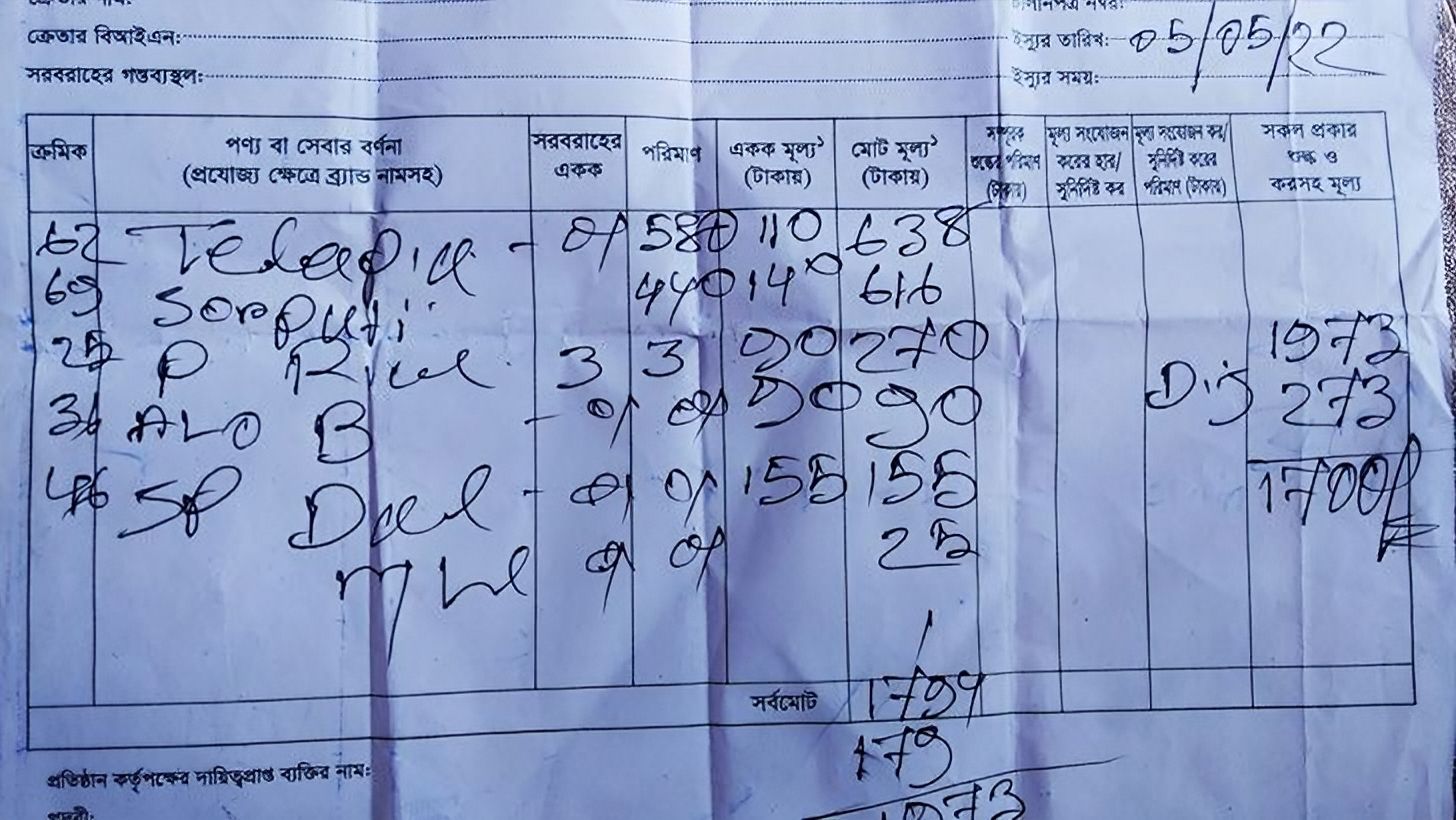 ক্রেতার বিআইএন:
সরবরাহের গন্তব্যস্থল:
ইস্যুর তারিখ: 05/05/22
ইস্যুর সময়:
ক্রমিক পণ্য বা সেবার বর্ণনা (প্রযোজ্য ক্ষেত্রে ব্র্যান্ড নামসহ) সরবরাহের একক পরিমাণ একক মূল্য১ (টাকায়) মোট মূল্য১ (টাকায়) সম্পূরক শুল্কের পরিমাণ (টাকায়) মূল্য সংযোজন করের হার/ সুনির্দিষ্ট কর মূল্য সংযোজন কর/ সুনির্দিষ্ট করের পরিমাণ (টাকায়) সকল প্রকার শুল্ক ও করসহ মূল্য
62 Telapia - 580 110 638
69 Sorputi 440 140 616
25 P Rice 3 3 90 270 1973
ALO B - 90 90 Dis 273
46 SP Dal - 155 155 1700/
25
সর্বমোট 1794
179
1973
প্রতিষ্ঠান কর্তৃপক্ষের দায়িত্বপ্রাপ্ত ব্যক্তির নাম:
পদবী: